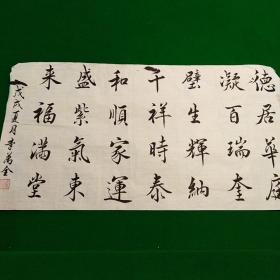 德居華庭
凝百瑞奎
璧生輝納
千祥時泰
和順家運
盛紫氣東
来福滿堂
戊戌夏月李萬全